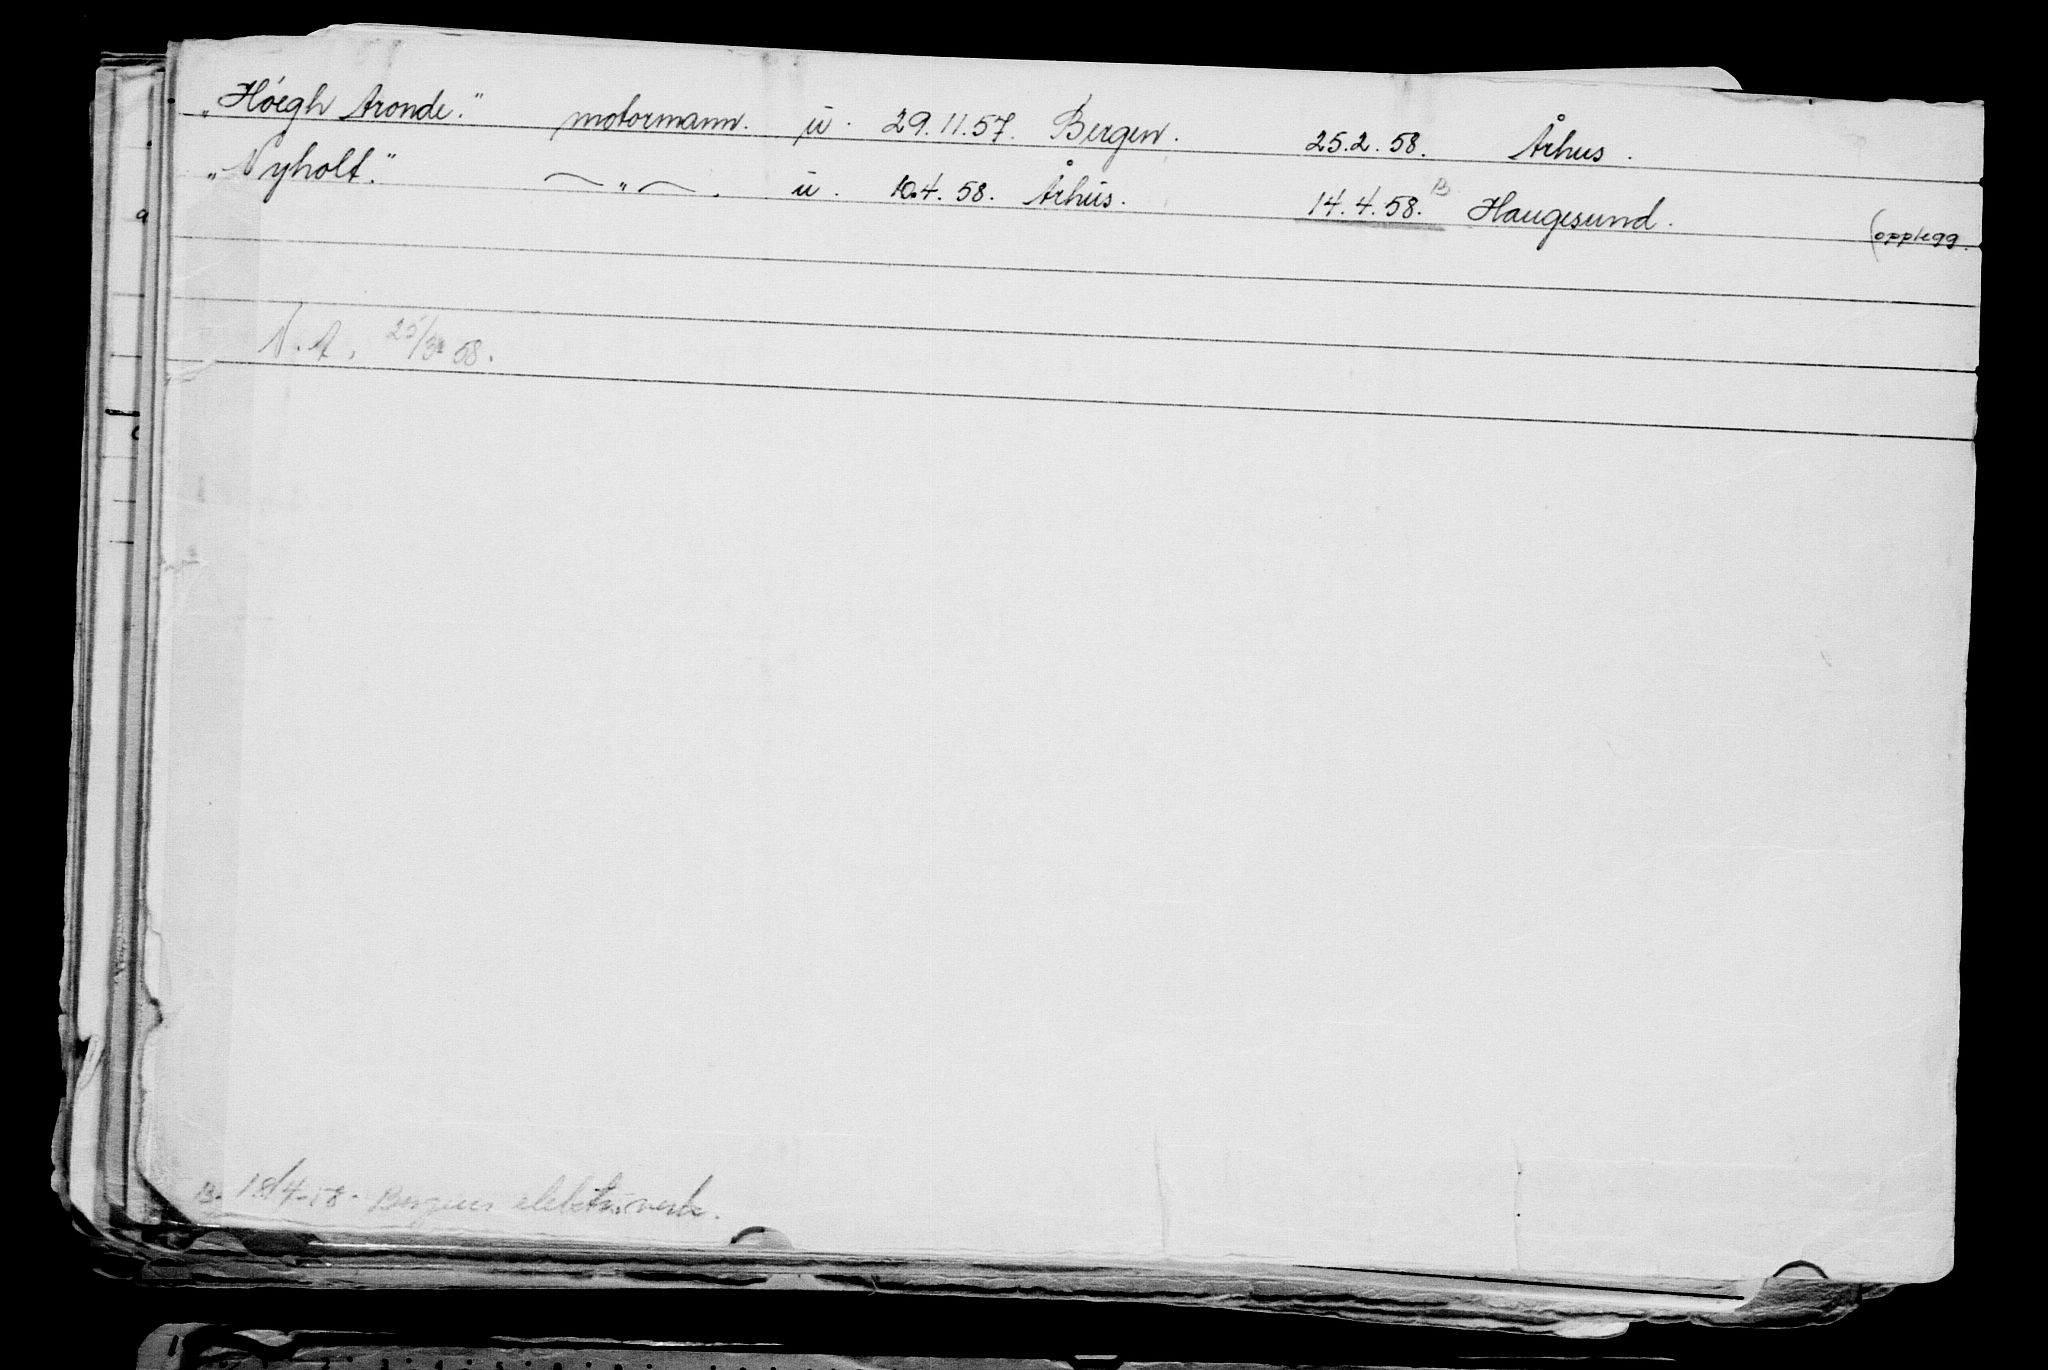 „Høegh Aronde.” motormann. u. 29.11.57. Bergen. 25.2.58. Århus.
„Nyholt.” — „ — . u. 10.4.58. Århus. 14.4.58. B. Haugesund. (opplegg.
N.A. 25/3 58.
B. 18/4-58. Bergens elektr.verk.